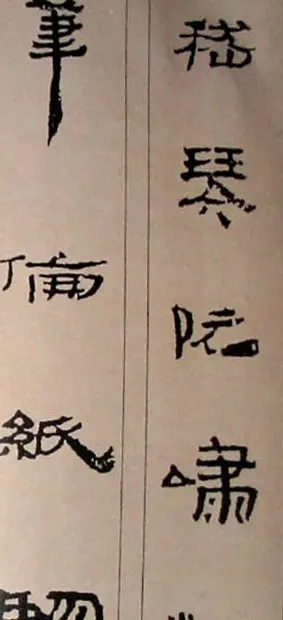 嵇琴阮嘯
筆倫紙